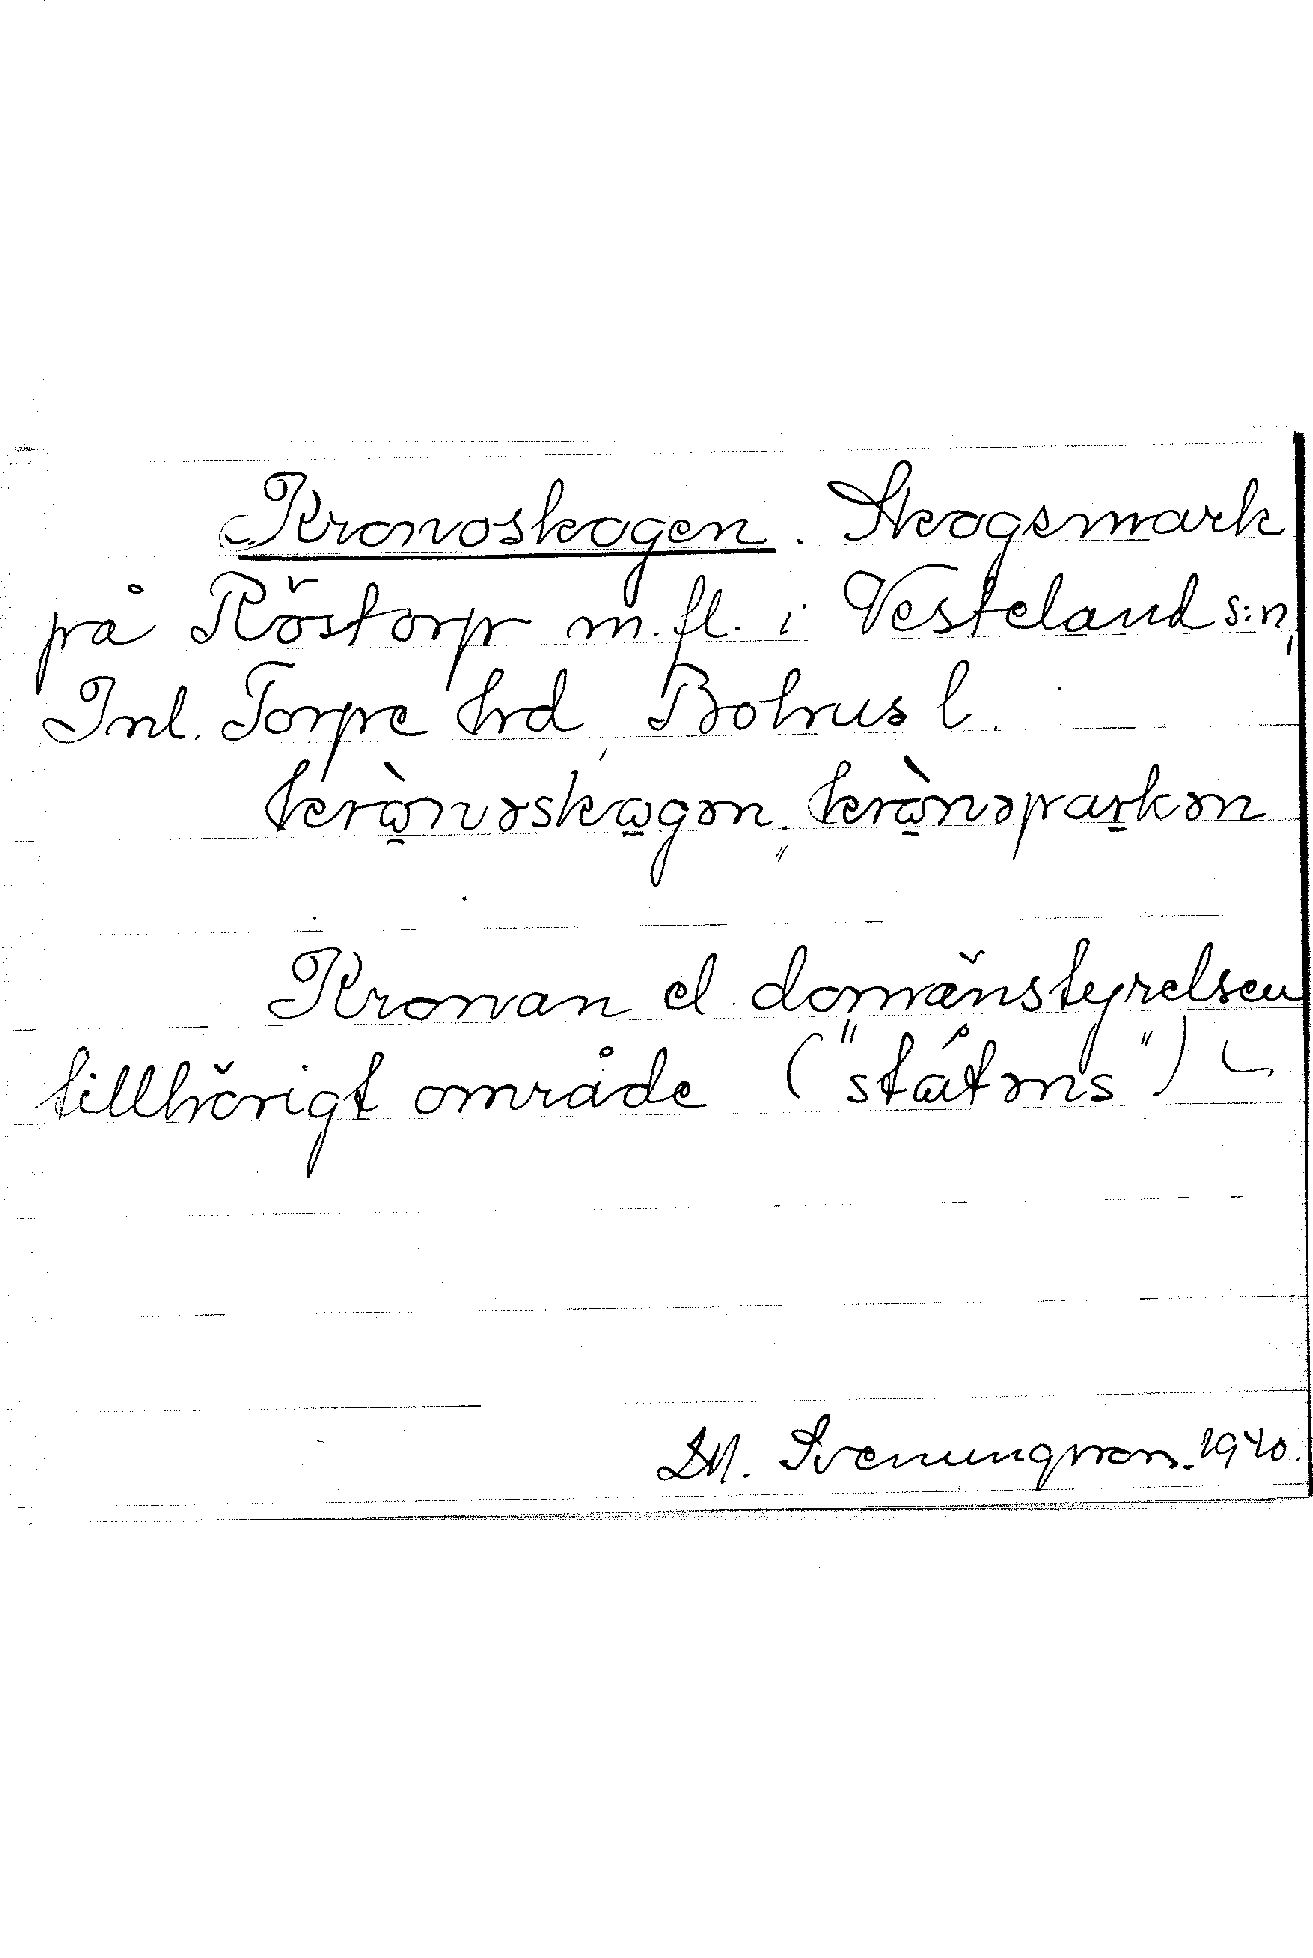 Kronoskogen. Skogsmark
på Röstorp m.fl. i Vesteland s:n,
Inl. Torpe hrd, Bohus l.
krὼnəskωgən, krὼnəparkən
Kronan el. domänstyrelsen
tillhörigt område ("státəns")
Svenungsson. 1940.